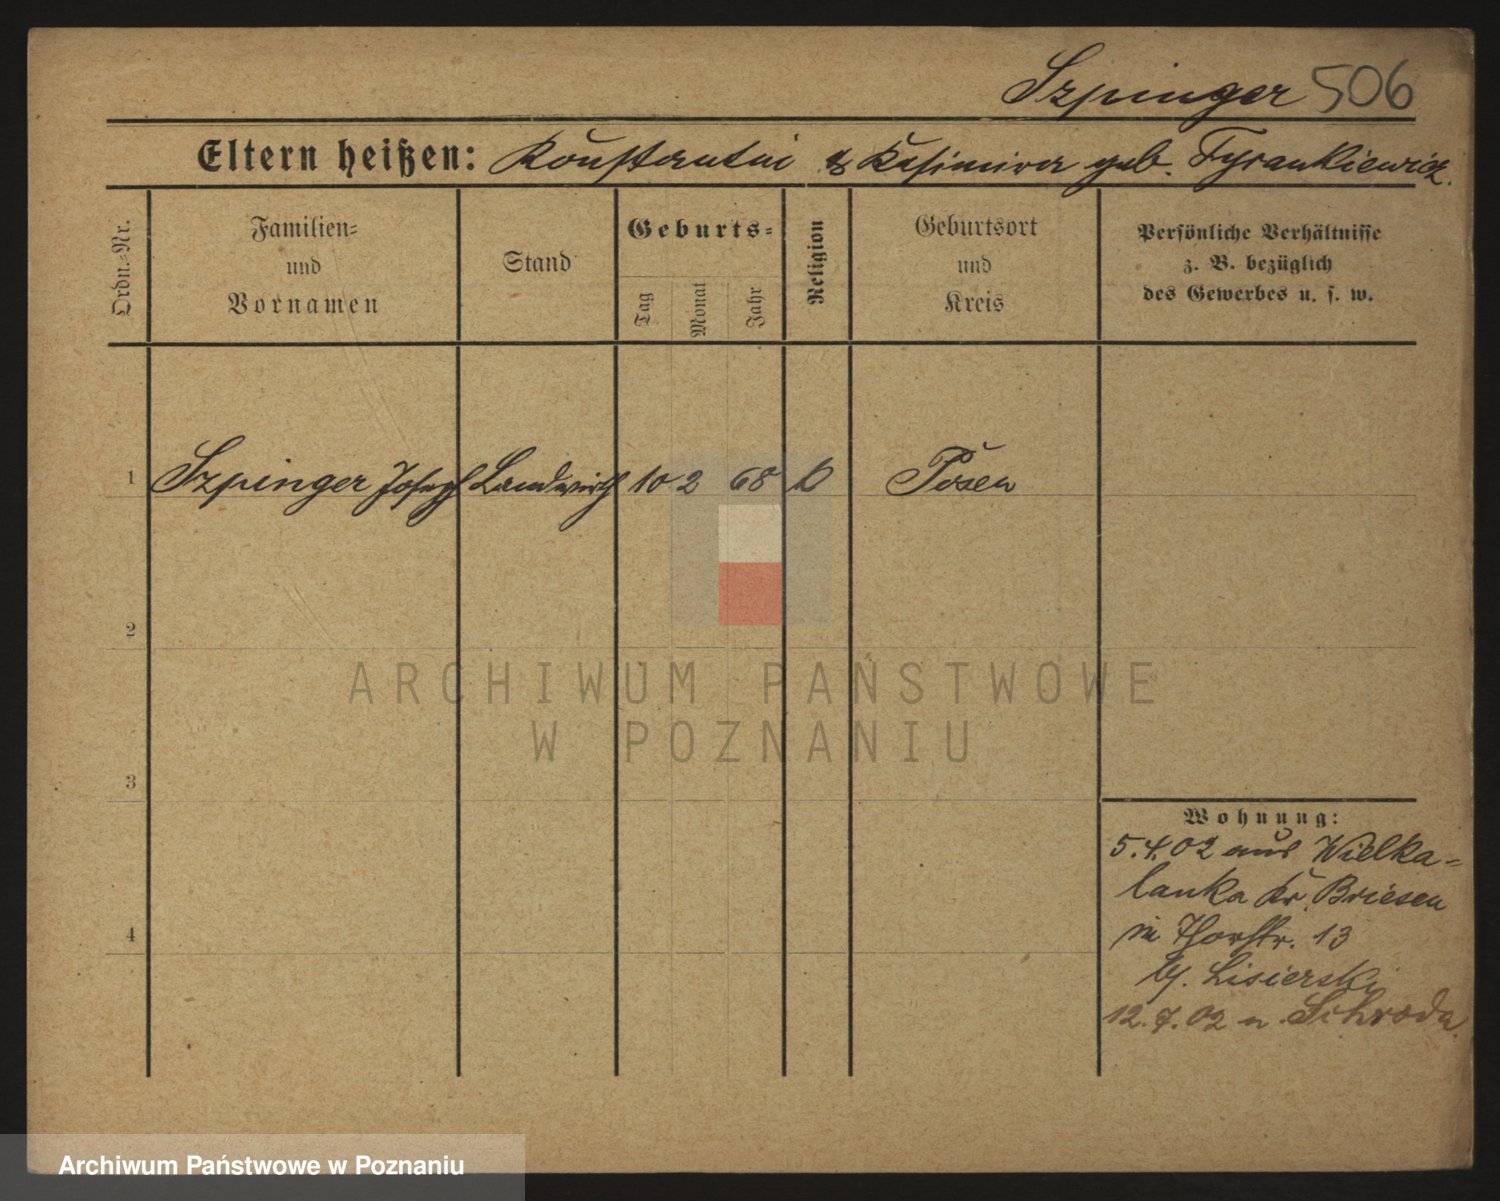 Szpinger 506
Eltern heißen: Konstantin & Kasimira geb. Tyrankiewicz.
Ordn.-Nr.
Familien-
und
Vornamen
Stand
Geburts-
Tag
Monat
Jahr
Religion
Geburtsort
und
Kreis
Persönliche Verhältnisse
z. B. bezüglich
des Gewerbes u. s. w.
1 Szpinger Joseph Landwirth 10 2 68 k Posen
2
3
4
Wohnung:
5.4.02 aus Wielka-
lanka Kr. Briesen
in Thorstr. 13
b/. Lisierski
12.7.02 n. Schroda
ARCHIWUM PAŃSTWOWE
W POZNANIU
Archiwum Państwowe w Poznaniu